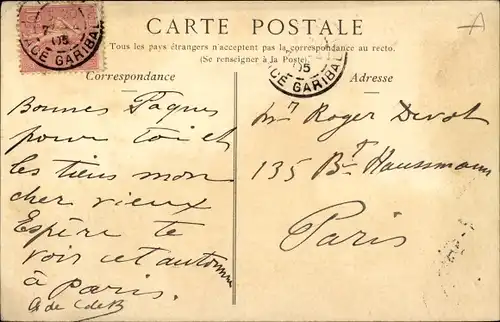 CARTE POSTALE
Tous les pays étrangers n'acceptent pas la correspondance au recto.
(Se renseigner à la Poste)
Correspondance
Adresse
7
05
ACE GARIBAL
05
CE GARIBAL
Bonnes Paques
pour toi et
les tiens mon
cher vieux
Espère te
vois cet automne
à Paris.
G de C de B
Mr Roger Devot
135 Bt Haussmann
Paris
A